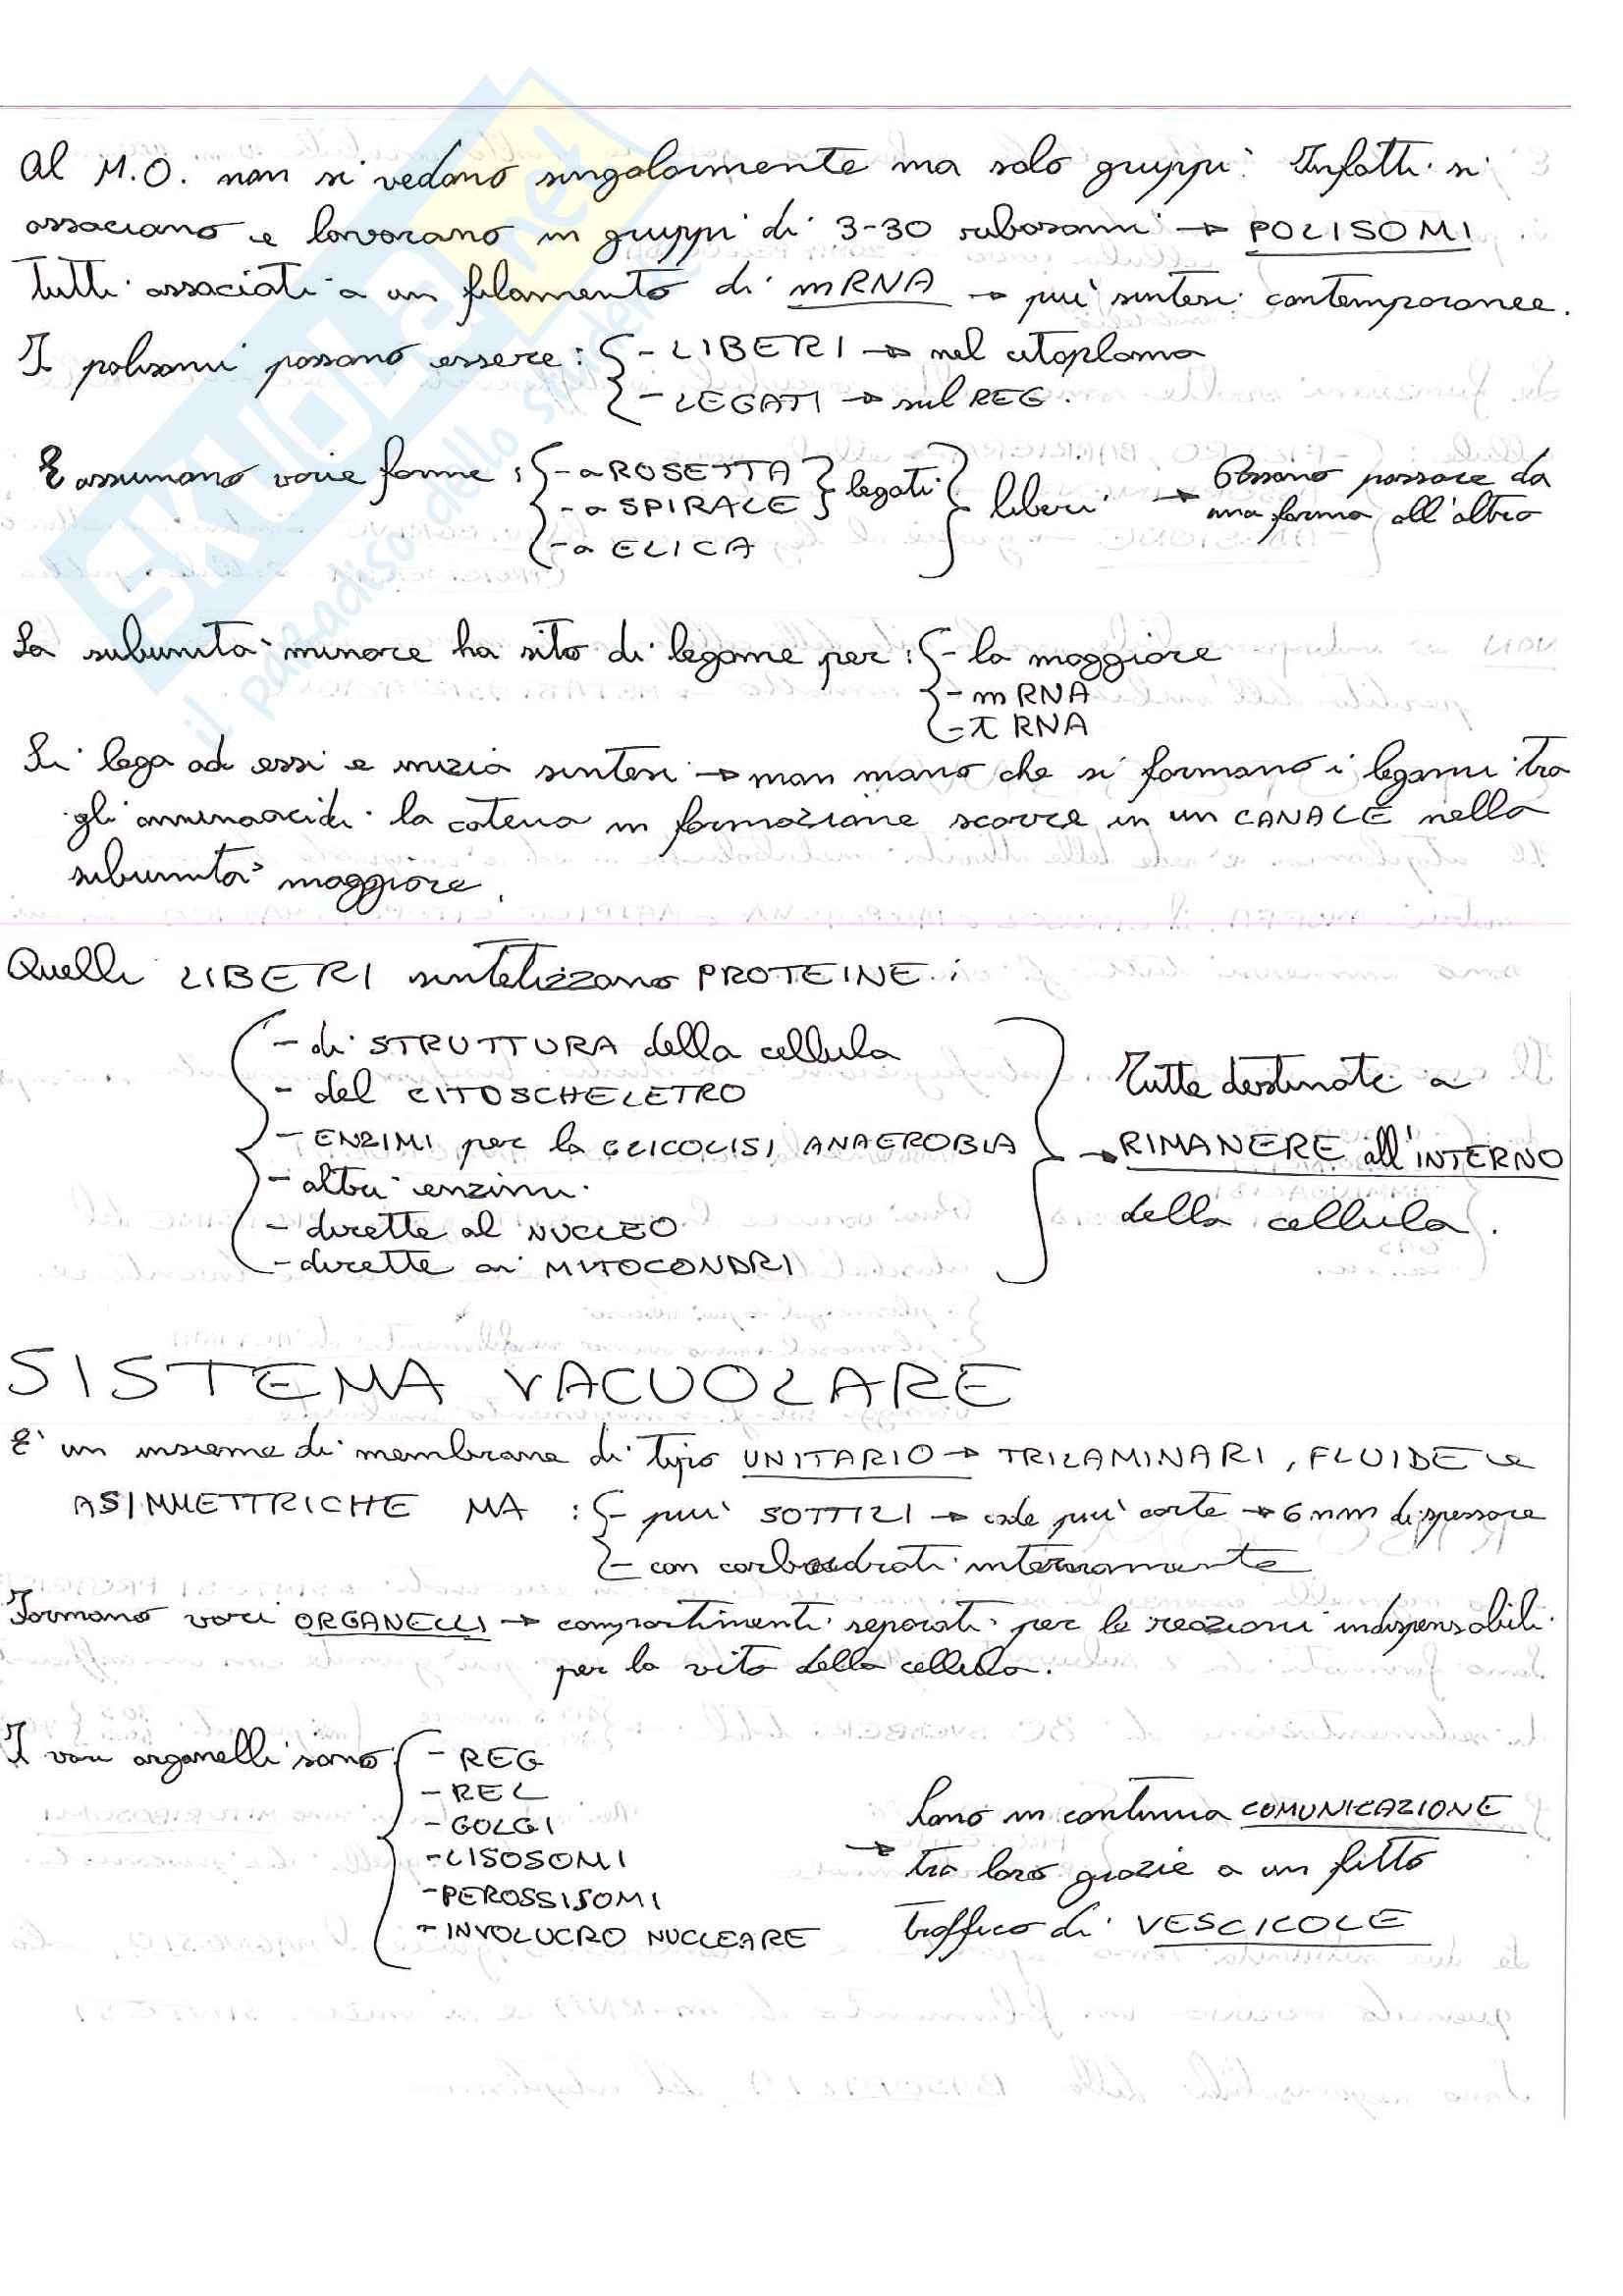 Al M.O. non si vedono singolarmente ma solo gruppi. Infatti si
associano e lavorano in gruppi di 3-30 ribosomi → POLISOMI
Tutti associati a un filamento di mRNA → più sintesi contemporanee.
I polisomi possono essere: { - LIBERI → nel citoplasma
- LEGATI → sul REG.
E assumono varie forme: { - a ROSETTA
- a SPIRALE } legati
- a ELICA } liberi → Possono passare da
una forma all'altra
La subunità minore ha sito di legame per: { - la maggiore
- mRNA
- tRNA
Si lega ad essi e inizia sintesi → man mano che si formano i legami tra
gli aminoacidi la catena in formazione scorre in un CANALE nella
subunità maggiore.
Quelli LIBERI sintetizzano PROTEINE:
- di STRUTTURA della cellula
- del CITOSCHELETRO
- ENZIMI per la GLICOLISI ANAEROBIA
- altri enzimi
- dirette al NUCLEO
- dirette ai MITOCONDRI
Tutte destinate a
→ RIMANERE all'INTERNO
della cellula.
SISTEMA VACUOLARE
E' un insieme di membrane di tipo UNITARIO → TRILAMINARI, FLUIDE e
ASIMMETTRICHE MA : { - più SOTTILI → code più corte → 6 nm di spessore
- con carboidrati internamente
Formano vari ORGANELLI → compartimenti separati per le reazioni indispensabili
per la vita della cellula.
I vari organelli sono { - REG
- REL
- GOLGI
- LISOSOMI
- PEROSSISOMI
- INVOLUCRO NUCLEARE
→ Sono in continua COMUNICAZIONE
tra loro grazie a un fitto
traffico di VESCICOLE
SKUOLA.net
il paradiso dello studente